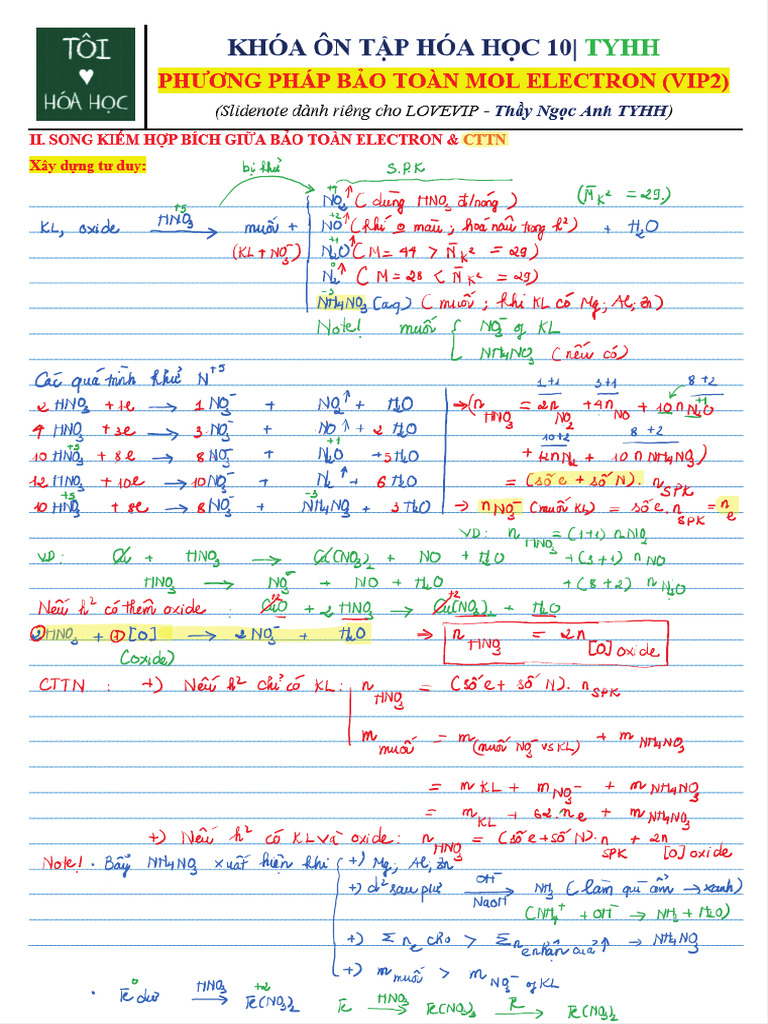 TÔI
♥
HÓA HỌC
KHÓA ÔN TẬP HÓA HỌC 10| TYHH
PHƯƠNG PHÁP BẢO TOÀN MOL ELECTRON (VIP2)
(Slidenote dành riêng cho LOVEVIP - Thầy Ngọc Anh TYHH)
II. SONG KIẾM HỢP BÍCH GIỮA BẢO TOÀN ELECTRON & CTTN
Xây dựng tư duy:
bị khử S.P.K
+4 NO2↑ (dùng HNO3 đ/nóng) (M̄K² = 29.)
KL, oxide +5 HNO3 → muối + +2 NO↑ (khí 0 màu; hoá nâu trong k²) + H2O
(KL + NO3⁻) +1 N2O↑ (M = 44 > M̄K² = 29)
0 N2↑ (M = 28 < M̄K² = 29)
-3 NH4NO3 (aq) (muối; khi KL có Mg; Al; Zn)
Note! muối { NO3⁻ of KL
NH4NO3 (nếu có)
Các quá trình khử N+5
2 HNO3 + 1e → 1 NO3⁻ + NO2↑ + H2O
4 HNO3 + 3e → 3 NO3⁻ + NO↑ + 2 H2O
10 HNO3 + 8e → 8 NO3⁻ + N2O + 5 H2O
12 HNO3 + 10e → 10 NO3⁻ + N2↑ + 6 H2O
10 HNO3 + 8e → 8 NO3⁻ + NH4NO3 + 3 H2O
1+1 3+1 8+2
→ (nHNO3 = 2nNO2 + 4nNO + 10nN2O
10+2 8+2
+ 12nN2 + 10nNH4NO3)
= (số e + số N). nSPK
→ nNO3⁻ (muối KL) = số e. nSPK = ne
VD: nHNO3 = (1+1) nNO2
+ (3+1) nNO
+ (8+2) nN2O
VD: Cu + HNO3 → Cu(NO3)2 + NO + H2O
HNO3 → NO3⁻ + NO + H2O
Nếu h² có thêm oxide: CuO + 2 HNO3 → Cu(NO3)2 + H2O
2 HNO3 + 1 [O] → 2 NO3⁻ + H2O → nHNO3 = 2n[O] oxide
(oxide)
CTTN: +) Nếu h² chỉ có KL: nHNO3 = (số e + số N). nSPK
mmuối = m(muối NO3⁻ vs KL) + mNH4NO3
= mKL + mNO3⁻ + mNH4NO3
= mKL + 62.ne + mNH4NO3
+) Nếu h² có KL và oxide: nHNO3 = (số e + số N). nSPK + 2n[O] oxide
Note! • Bẫy NH4NO3 xuất hiện khi { +) Mg; Al; Zn
+) d² sau pư OH⁻ → NaOH NH3 (làm quì ẩm → xanh)
(NH4+ + OH⁻ → NH3 + H2O)
+) Σne cho > Σne nhận của ↑ → NH4NO3
+) mmuối > mNO3⁻ of KL
• Fe dư HNO3 → Fe(NO3)2 Fe HNO3 → Fe(NO3)3 Fe → Fe(NO3)2